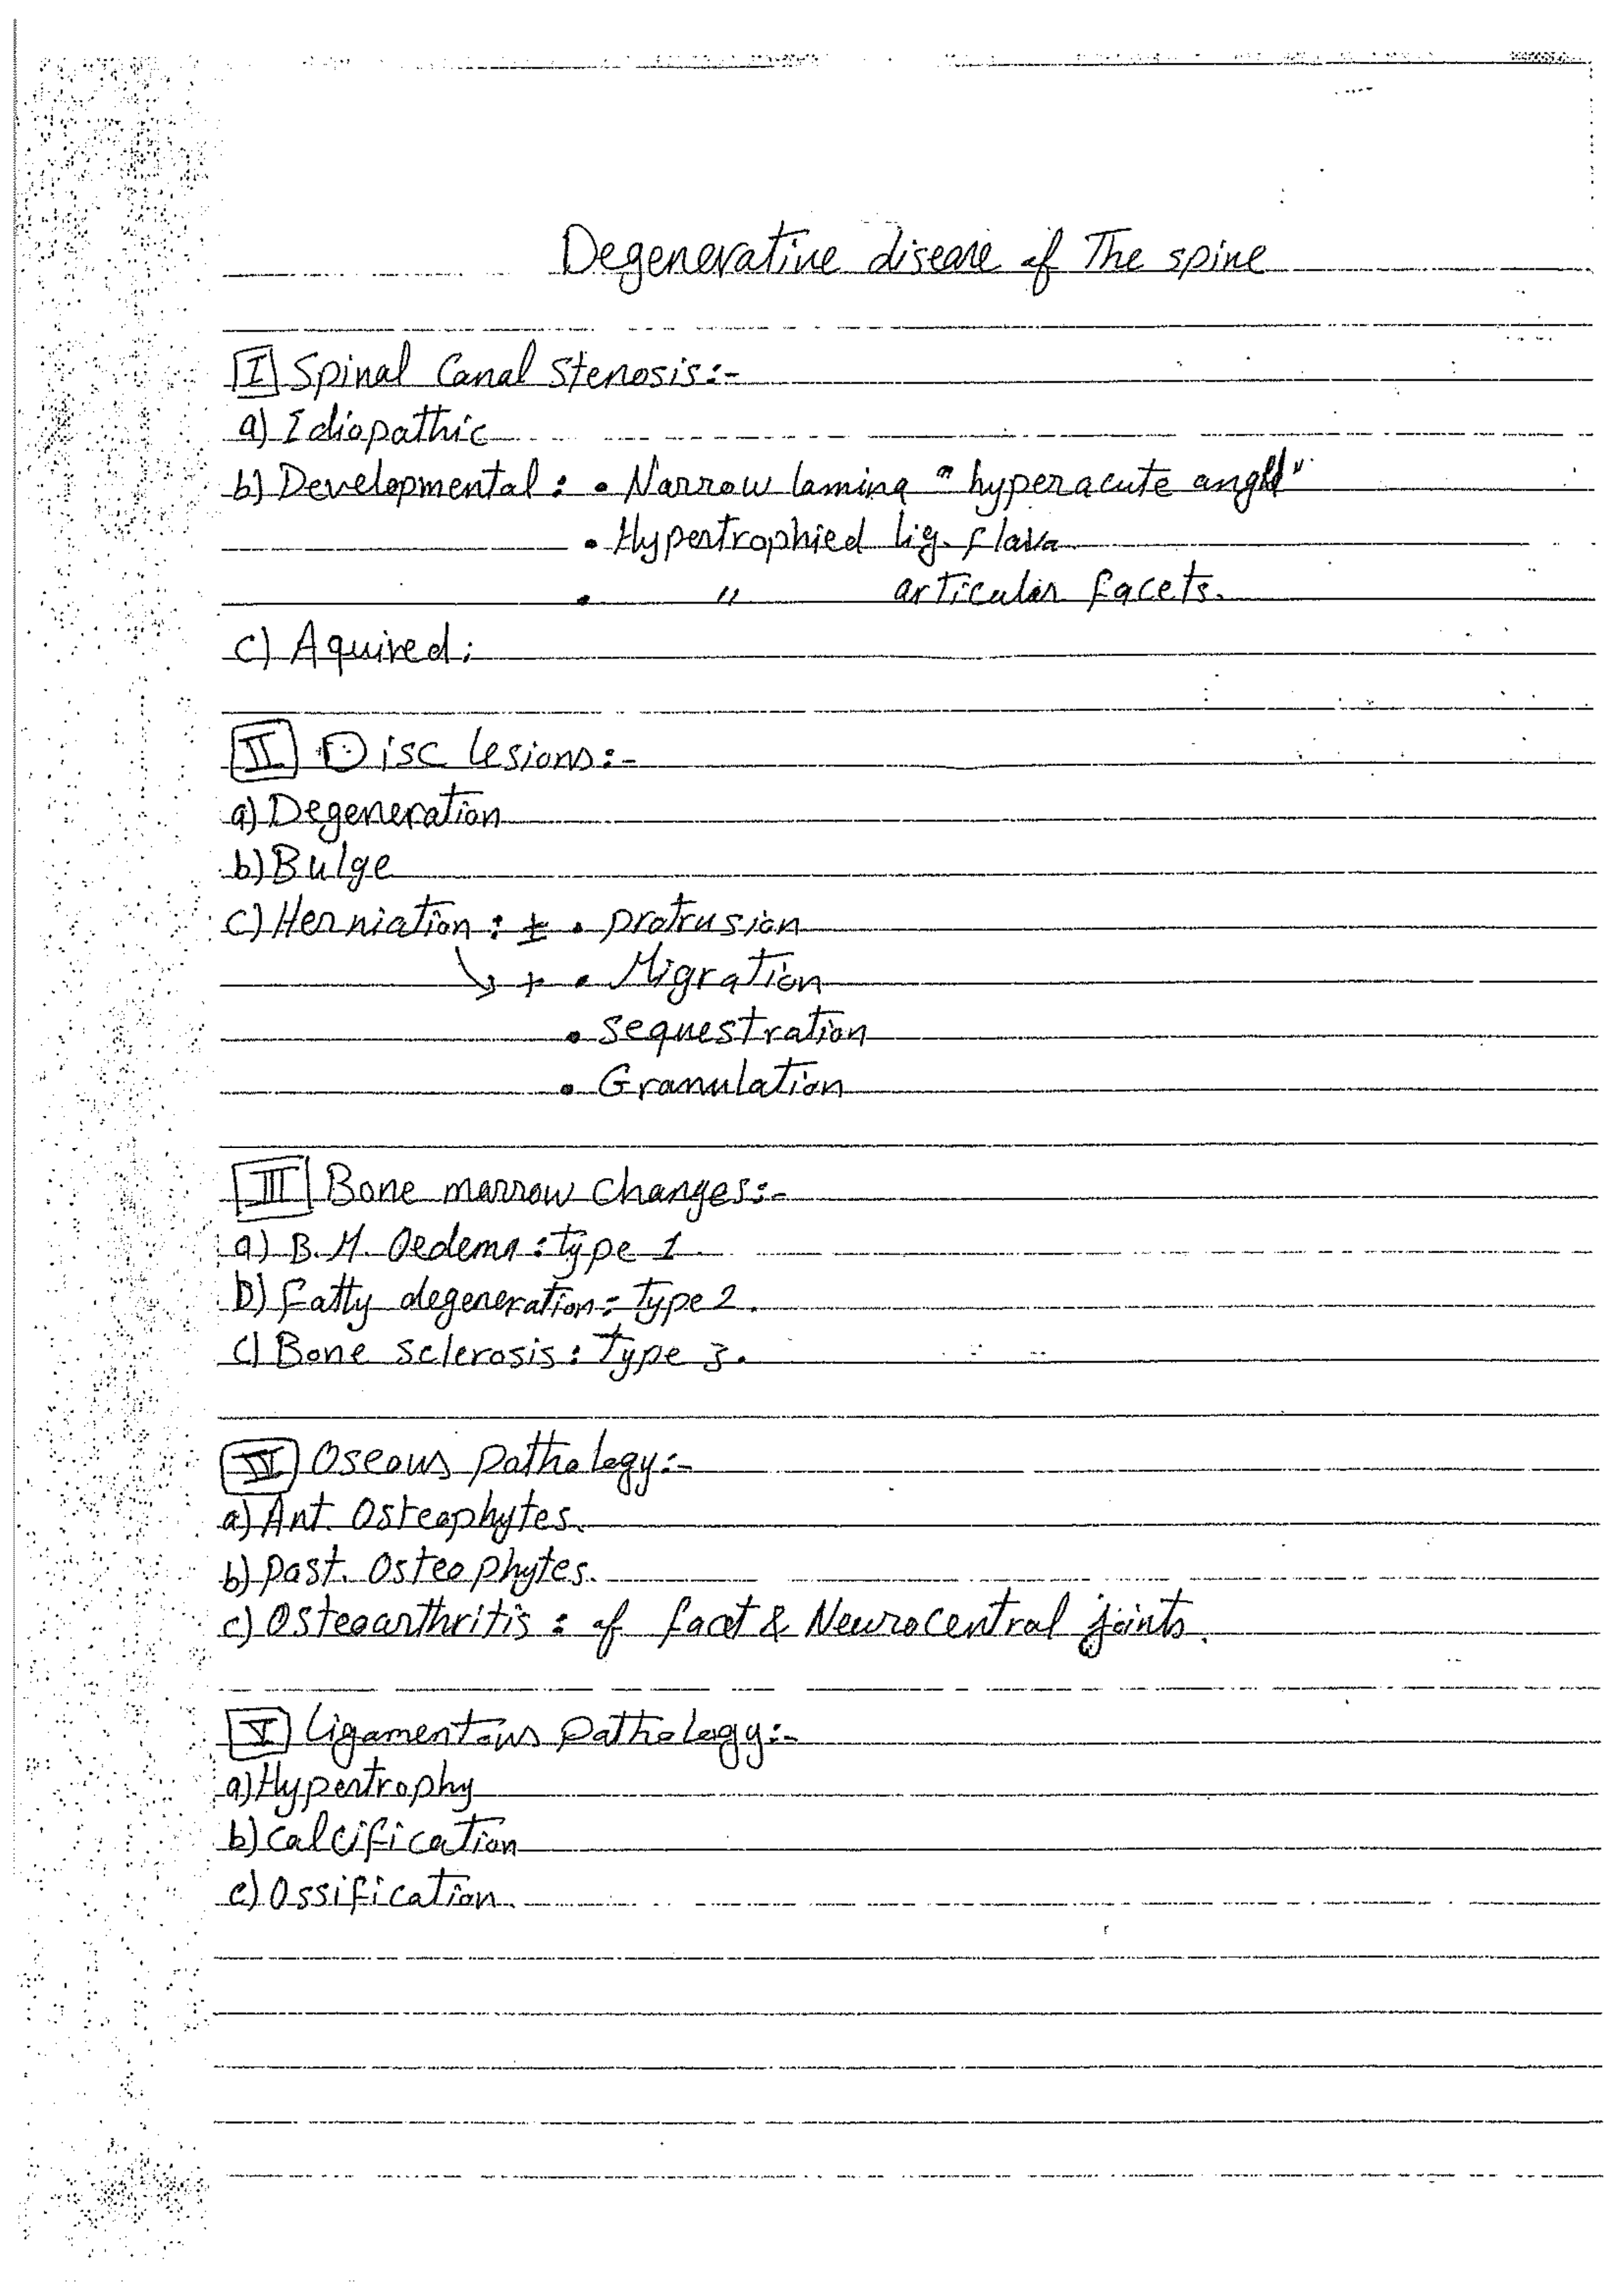 Degenerative disease of The spine
I Spinal Canal Stenosis:-
a) Idiopathic
b) Developmental: • Narrow lamina "hyperacute angle"
• Hypertrophied lig. flava
• " articular facets.
c) Aquired:
II Disc lesions:-
a) Degeneration
b) Bulge
c) Herniation: ± • protrusion
↘ + • Migration
• sequestration
• Granulation
III Bone marrow changes:-
a) B.M. Oedema: type 1
b) fatty degeneration: Type 2.
c) Bone sclerosis: Type 3.
IV Oseous pathology:-
a) Ant. Osteophytes.
b) post. Osteophytes.
c) Osteoarthritis: of facet & Neurocentral joints.
V ligamentous pathology:-
a) Hypertrophy
b) calcification
c) Ossification.